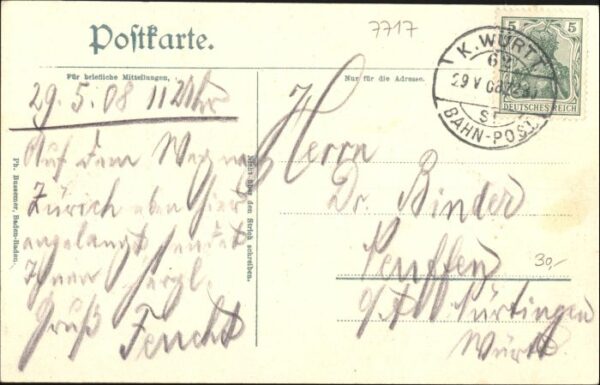 7717
Postkarte.
Für briefliche Mitteilungen.
Nur für die Adresse.
5 5
DEUTSCHES REICH
K. WÜRTT.
29 V 08
BAHN-POST
29.5.08 11 Uhr
Auf dem Weg nach
Zürich eben hier
angelangt sendet
Ihnen herzl.
Gruß Feucht
Herrn
Dr. Binder
Neuffen
O/A Nürtingen
Württ
30,-
Ph. Bussemer, Baden-Baden.
Nicht über den Strich schreiben.